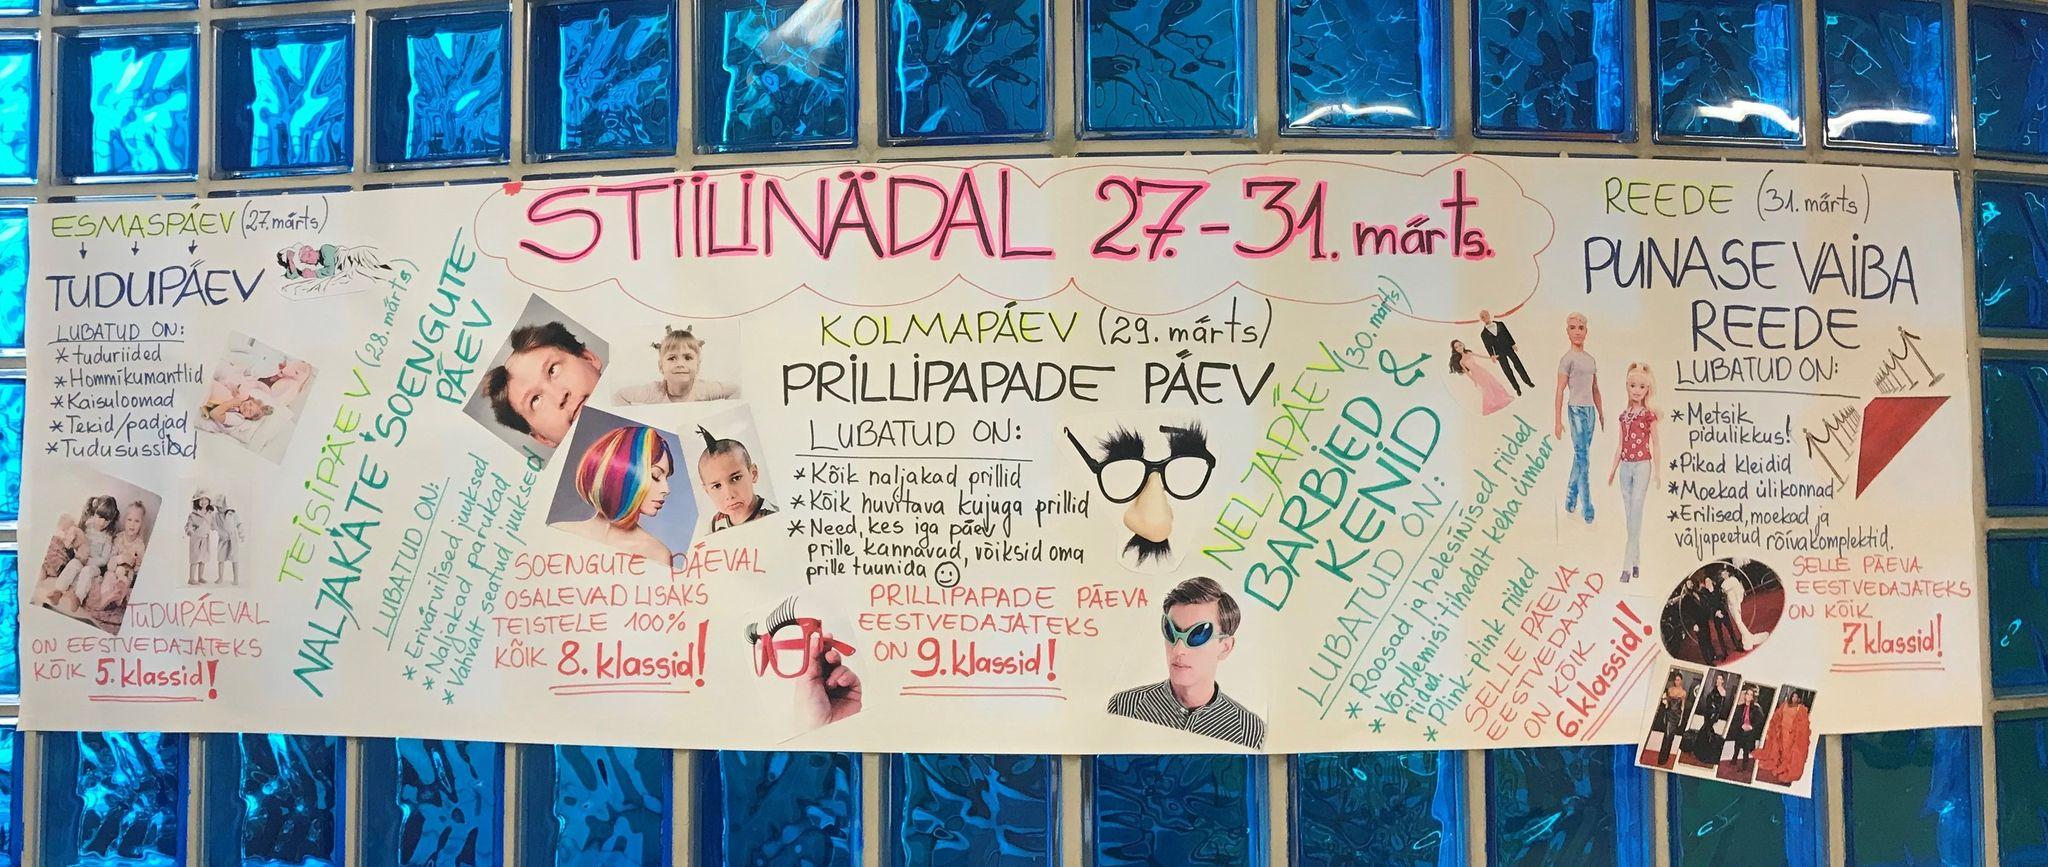 STIILINÄDAL 27.-31. märts.
ESMASPÄEV (27. märts)
TUDUPÄEV
LUBATUD ON:
* tuduriided
* Hommikumantlid
* Kaisuloomad
* Tekid/padjad
* Tudusussibad
TUDUPÄEVAL
ON EESTVEDAJATEKS
KÕIK 5. klassid!
TEISIPÄEV (28. märts)
NALJAKATE SOENGUTE
PÄEV
LUBATUD ON:
* Erivärvilised juuksed
* Naljakad parukad
* Vahvalt seatud juuksed
SOENGUTE PÄEVAL
OSALEVAD LISAKS
TEISTELE 100%
KÕIK 8. klassid!
KOLMAPÄEV (29. märts)
PRILLIPAPADE PÄEV
LUBATUD ON:
* Kõik naljakad prillid
* Kõik huvitava kujuga prillid
* Need, kes iga päev
prille kannavad, võiksid oma
prille tuunida ☺
PRILLIPAPADE PÄEVA
EESTVEDAJATEKS
ON 9. klassid!
NELJAPÄEV (30. märts)
BARBIED &
KENID
LUBATUD ON:
* Roosad ja helesinised riided
* Võrdlemisi tihedalt keha ümber
riided.
* Plink-plink riided
SELLE PÄEVA
EESTVEDAJAD
ON KÕIK
6. klassid!
REEDE (31. märts)
PUNASE VAIBA
REEDE
LUBATUD ON:
* Metsik
pidulikkus!
* Pikad kleidid
* Moekad ülikonnad
* Erilised, moekad ja
väljapeetud rõivakomplektid.
SELLE PÄEVA
EESTVEDAJATEKS
ON KÕIK
7. klassid!